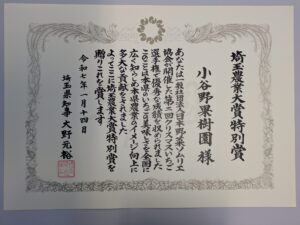 埼玉農業大賞特別賞
小谷野果樹園 様
あなたは一般社団法人日本野菜ソムリエ
協会が開催した第二回クリスマスいちご
選手権で優秀な成績を収められました
このことは本県のいちごの美味しさを全国に
広く知らしめ本県農業のイメージ向上に
多大な貢献をされました
よってここに埼玉農業大賞特別賞を
贈りこれを賞します
令和七年一月二十四日
埼玉県知事 大野元裕